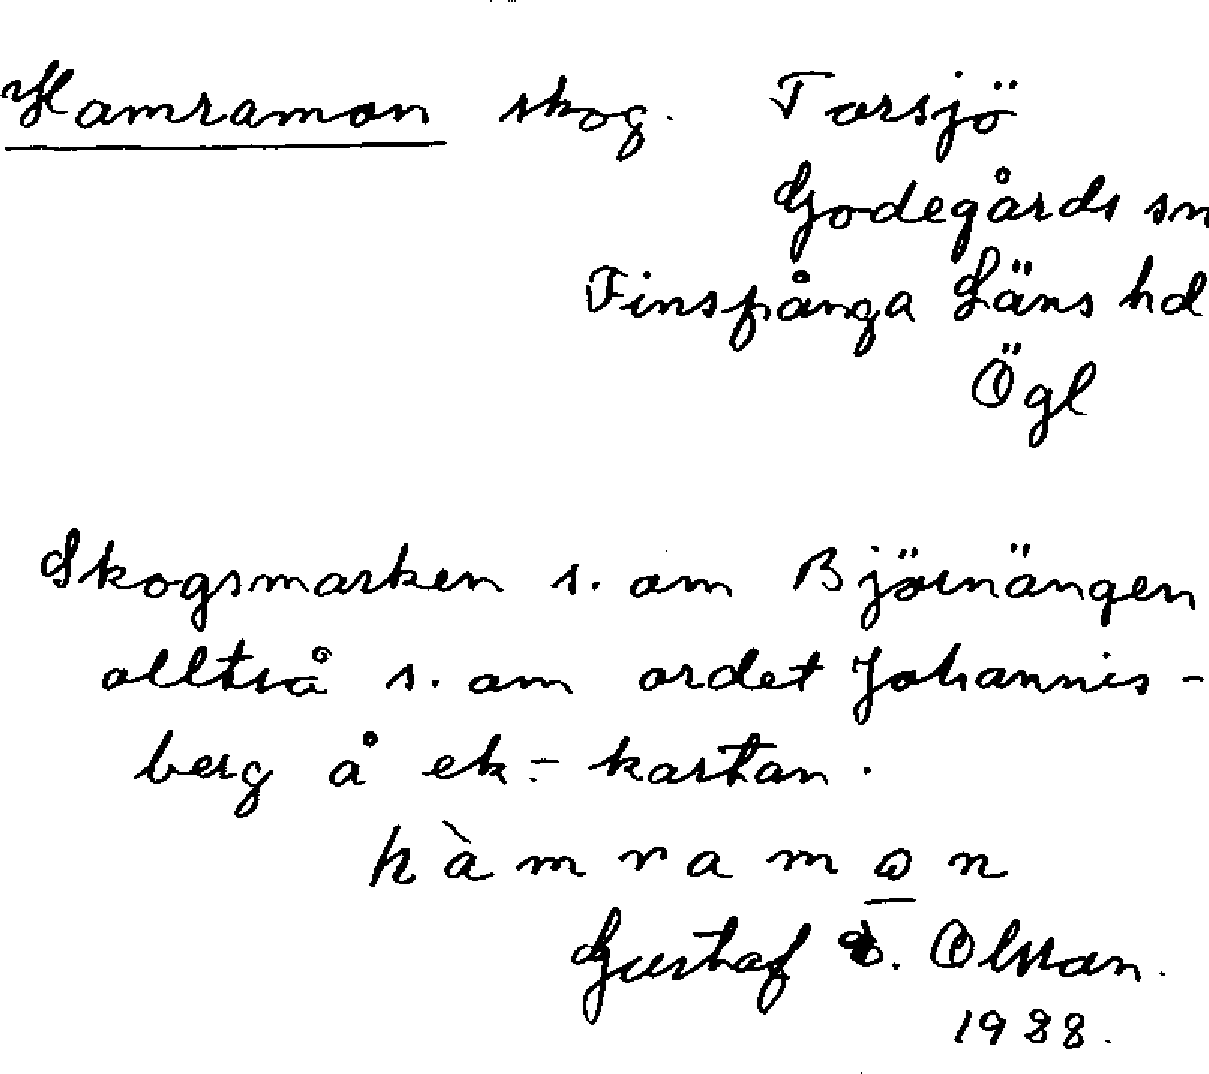 Hamramon skog. Torsjö
Godegårds sn
Finspånga Läns hd
Ögl
Skogsmarken s. om Björnängen
olltså s. om ordet Johannis-
berg å ek.- kartan.
hàmramon
Gustaf Olsson.
1988.